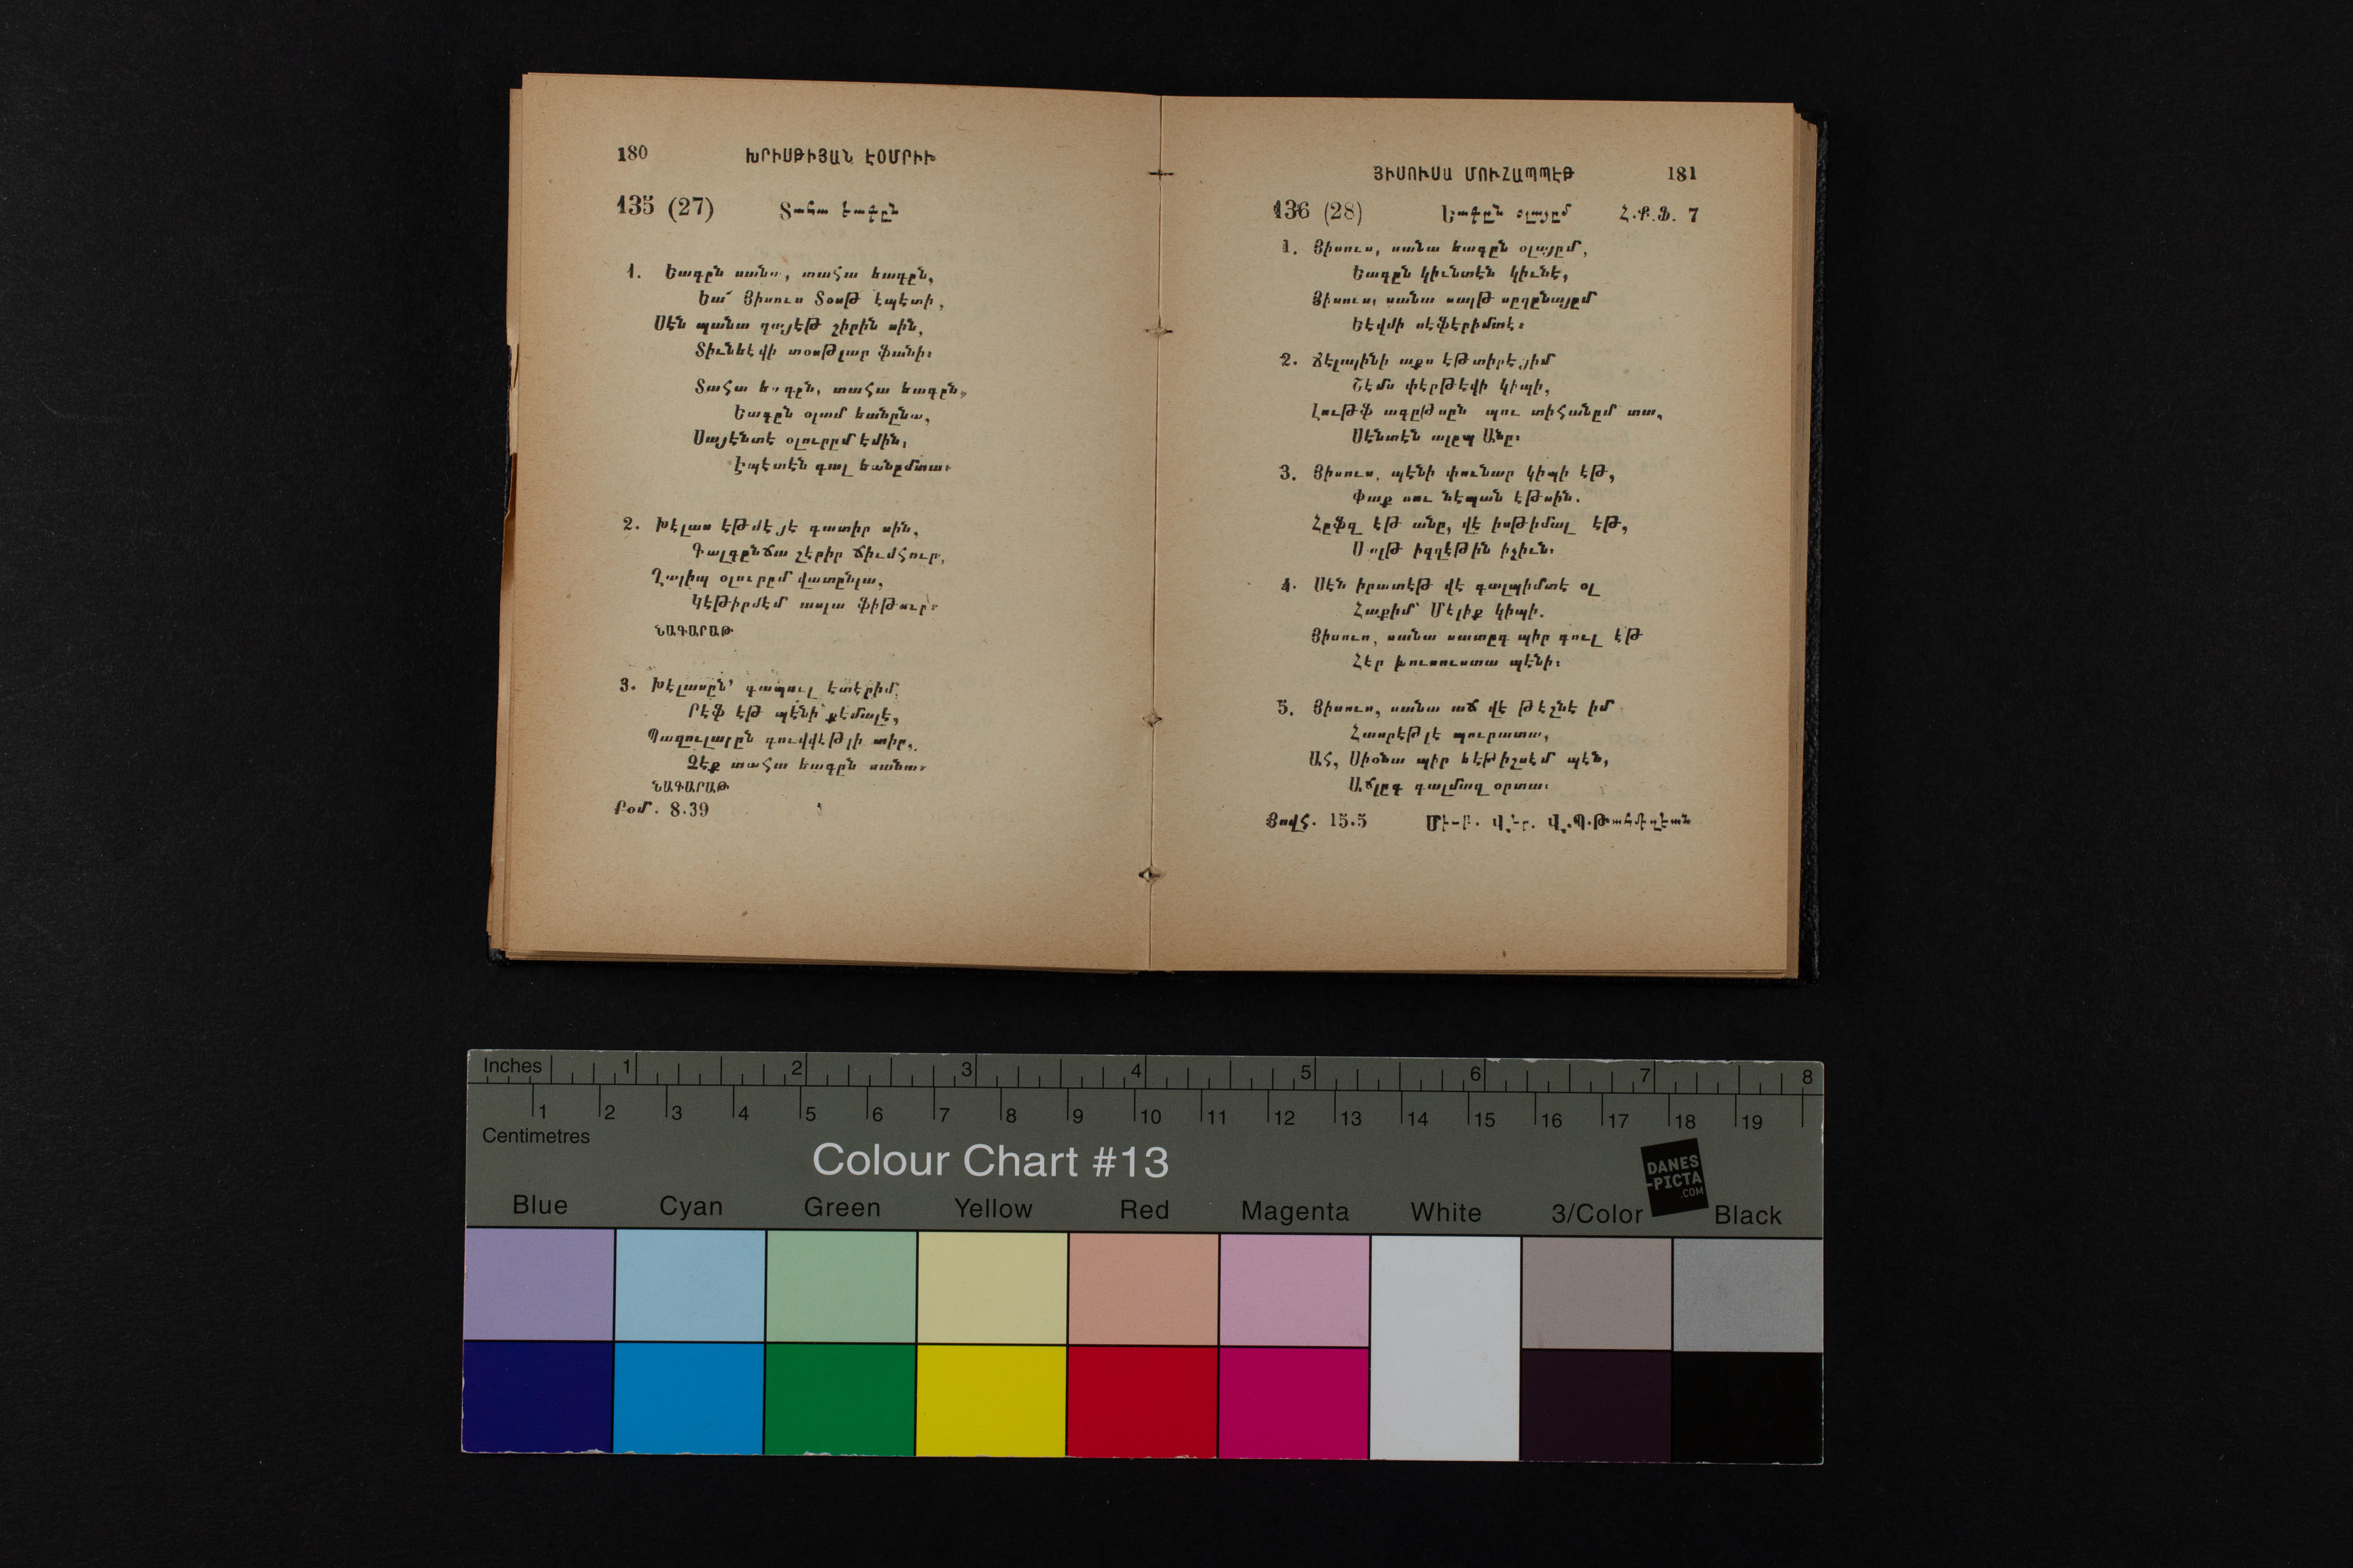 180 ԽՐԻՍԹԻՅԱՆ ԷՕՄՐԻԻ
135 (27) Տահա եագըն
1. Եագըն սանա, տահա եագըն,
Եա՜ Յիսուս Տօսթ էպէտի,
Սէն պանա ղայէթ շիրին սին,
Տիւնեէվի տօսթլար ֆանի։
Տահա եագըն, տահա եագըն,
Եագըն օլամ եանընա,
Սայէնտէ օլուրըմ էմին,
Էպէտէն գալ եանըմտա։
2. Խէլաս էթմէյէ գատիր սին,
Գալգընճա շէրիր ճիւմհուր,
Ղալիպ օլուրըմ վատընլա,
Կէթիրմէմ ասլա ֆիթուր։
ՆԱԳԱՐԱԹ
3. Խէլասըն՝ գապուլ էտէրիմ,
Րէֆ էթ պէնի քէմալէ,
Պազուլարըն գուվվէթլի տիր,
Չէք տահա եագըն սանա։
ՆԱԳԱՐԱԹ
Րօմ. 8.39
ՅԻՍՈՒՍԱ ՄՈՒՀԱՊՊԷԹ 181
136 (28) Եագըն օլայըմ Հ.Ք.Ֆ. 7
1. Յիսուս, սանա եագըն օլայըմ,
Եագըն կիւնտէն կիւնէ,
Յիսուս, սանա սալթ սըղընայըմ
Եէվմի սէֆէրիմտէ։
2. Ճէլալինի աքս էթտիրէյիմ
Շէմս փէրթէվի կիպի,
Լութֆ ագըթսըն պու տիհանըմ տա,
Սէնտէն ալըպ Անը։
3. Յիսուս, պէնի փունար կիպի էթ,
Փաք սու նէպան էթսին.
Հըֆզ էթ անը, վէ իսթիմալ էթ,
Սալթ իզզէթին իչիւն։
4. Սէն իրատէթ վէ գալպիմտէ օլ
Հաքիմ՝ Մէլիք կիպի.
Յիսուս, սանա սատըգ պիր գուլ էթ
Հէր խուսուստա պէնի։
5. Յիսուս, սանա աճ վէ թէշնէ իմ
Հասրէթլէ պուրատա,
Ահ, Սիօնա պիր եէթիշսէմ պէն,
Աճլըգ գալմազ օրտա։
Յովհ. 15.5
Inches 1 2 3 4 5 6 7 8
1 2 3 4 5 6 7 8 9 10 11 12 13 14 15 16 17 18 19
Centimetres
Colour Chart #13
DANES
-PICTA
.COM
Blue Cyan Green Yellow Red Magenta White 3/Color Black